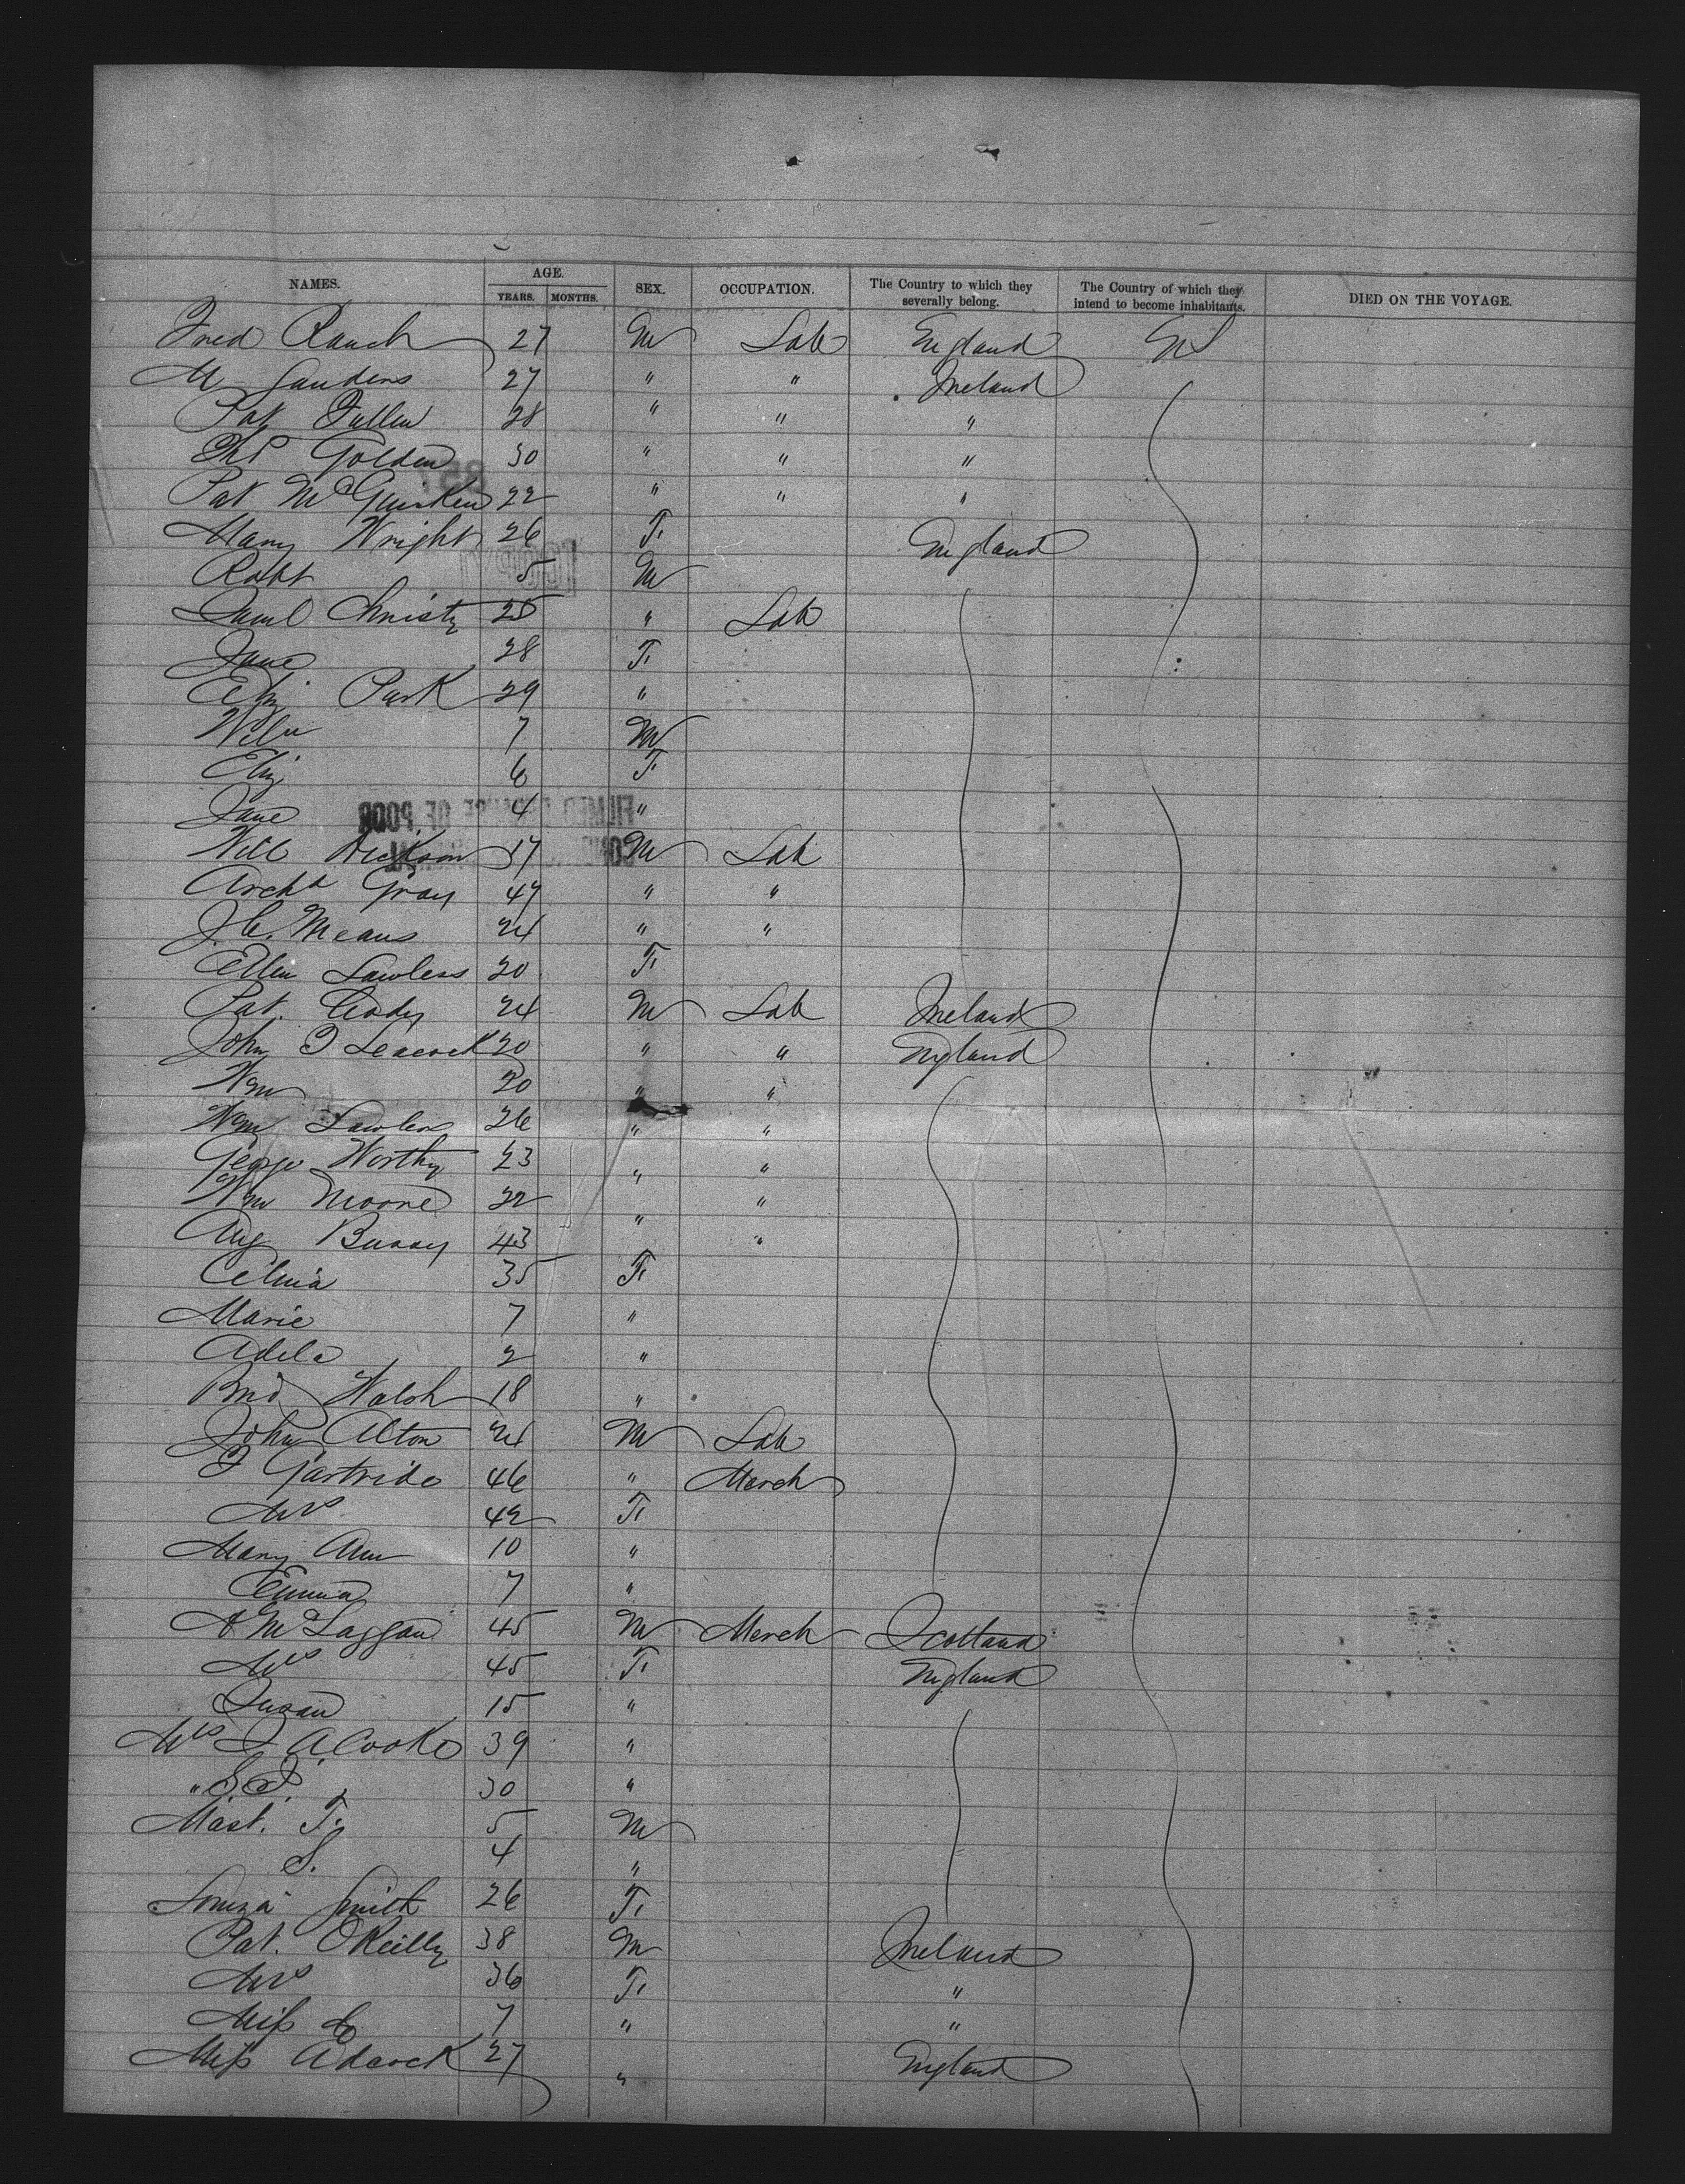 NAMES. AGE. SEX. OCCUPATION. The Country to which they severally belong. The Country of which they intend to become inhabitants. DIED ON THE VOYAGE.
YEARS. MONTHS.
Fred Rauch 27 M Lab England US
M Gaudens 27 " " Ireland
Pat Fallen 28 " " "
Ths Golden 30 " " "
Pat McGuirken 22 " " "
Mary Wright 26 F. England
Robt 5 M
Saml Christy 25 " Lab
Jane 28 F.
Eliz Park 29 "
7 M
Eliz 6 F
Jane 4 "
Will Dickson 17 M Lab
Archd Gray 47 " "
J. C. Means 24 " "
Ellen Lawless 20 F.
Pat. Cody 24 M Lab Ireland
John J Leacock 20 " " England
Wm 20 " "
Wm Lawless 26 " "
George Worthy 23 " "
Wm Moore 22 " "
Aug 43 " "
Celina 35 F.
Marie 7 "
Adele 2 "
Brid Walsh 18 "
John Alton 24 M Lab
46 " Merch
Mrs 42 F.
Mary Ann 10 "
Emma 7 "
A McLaggan 45 M Merch Scotland
Mrs 45 F. England
Susan 15 "
Mrs J A Cooke 39 "
" S. J. 30 "
Mast. F. 5 M
S. 4 "
Smith 26 F.
Pat. OReilly 38 M Ireland
Mrs 36 F. "
Miss 7 " "
Miss Adcock 27 " England